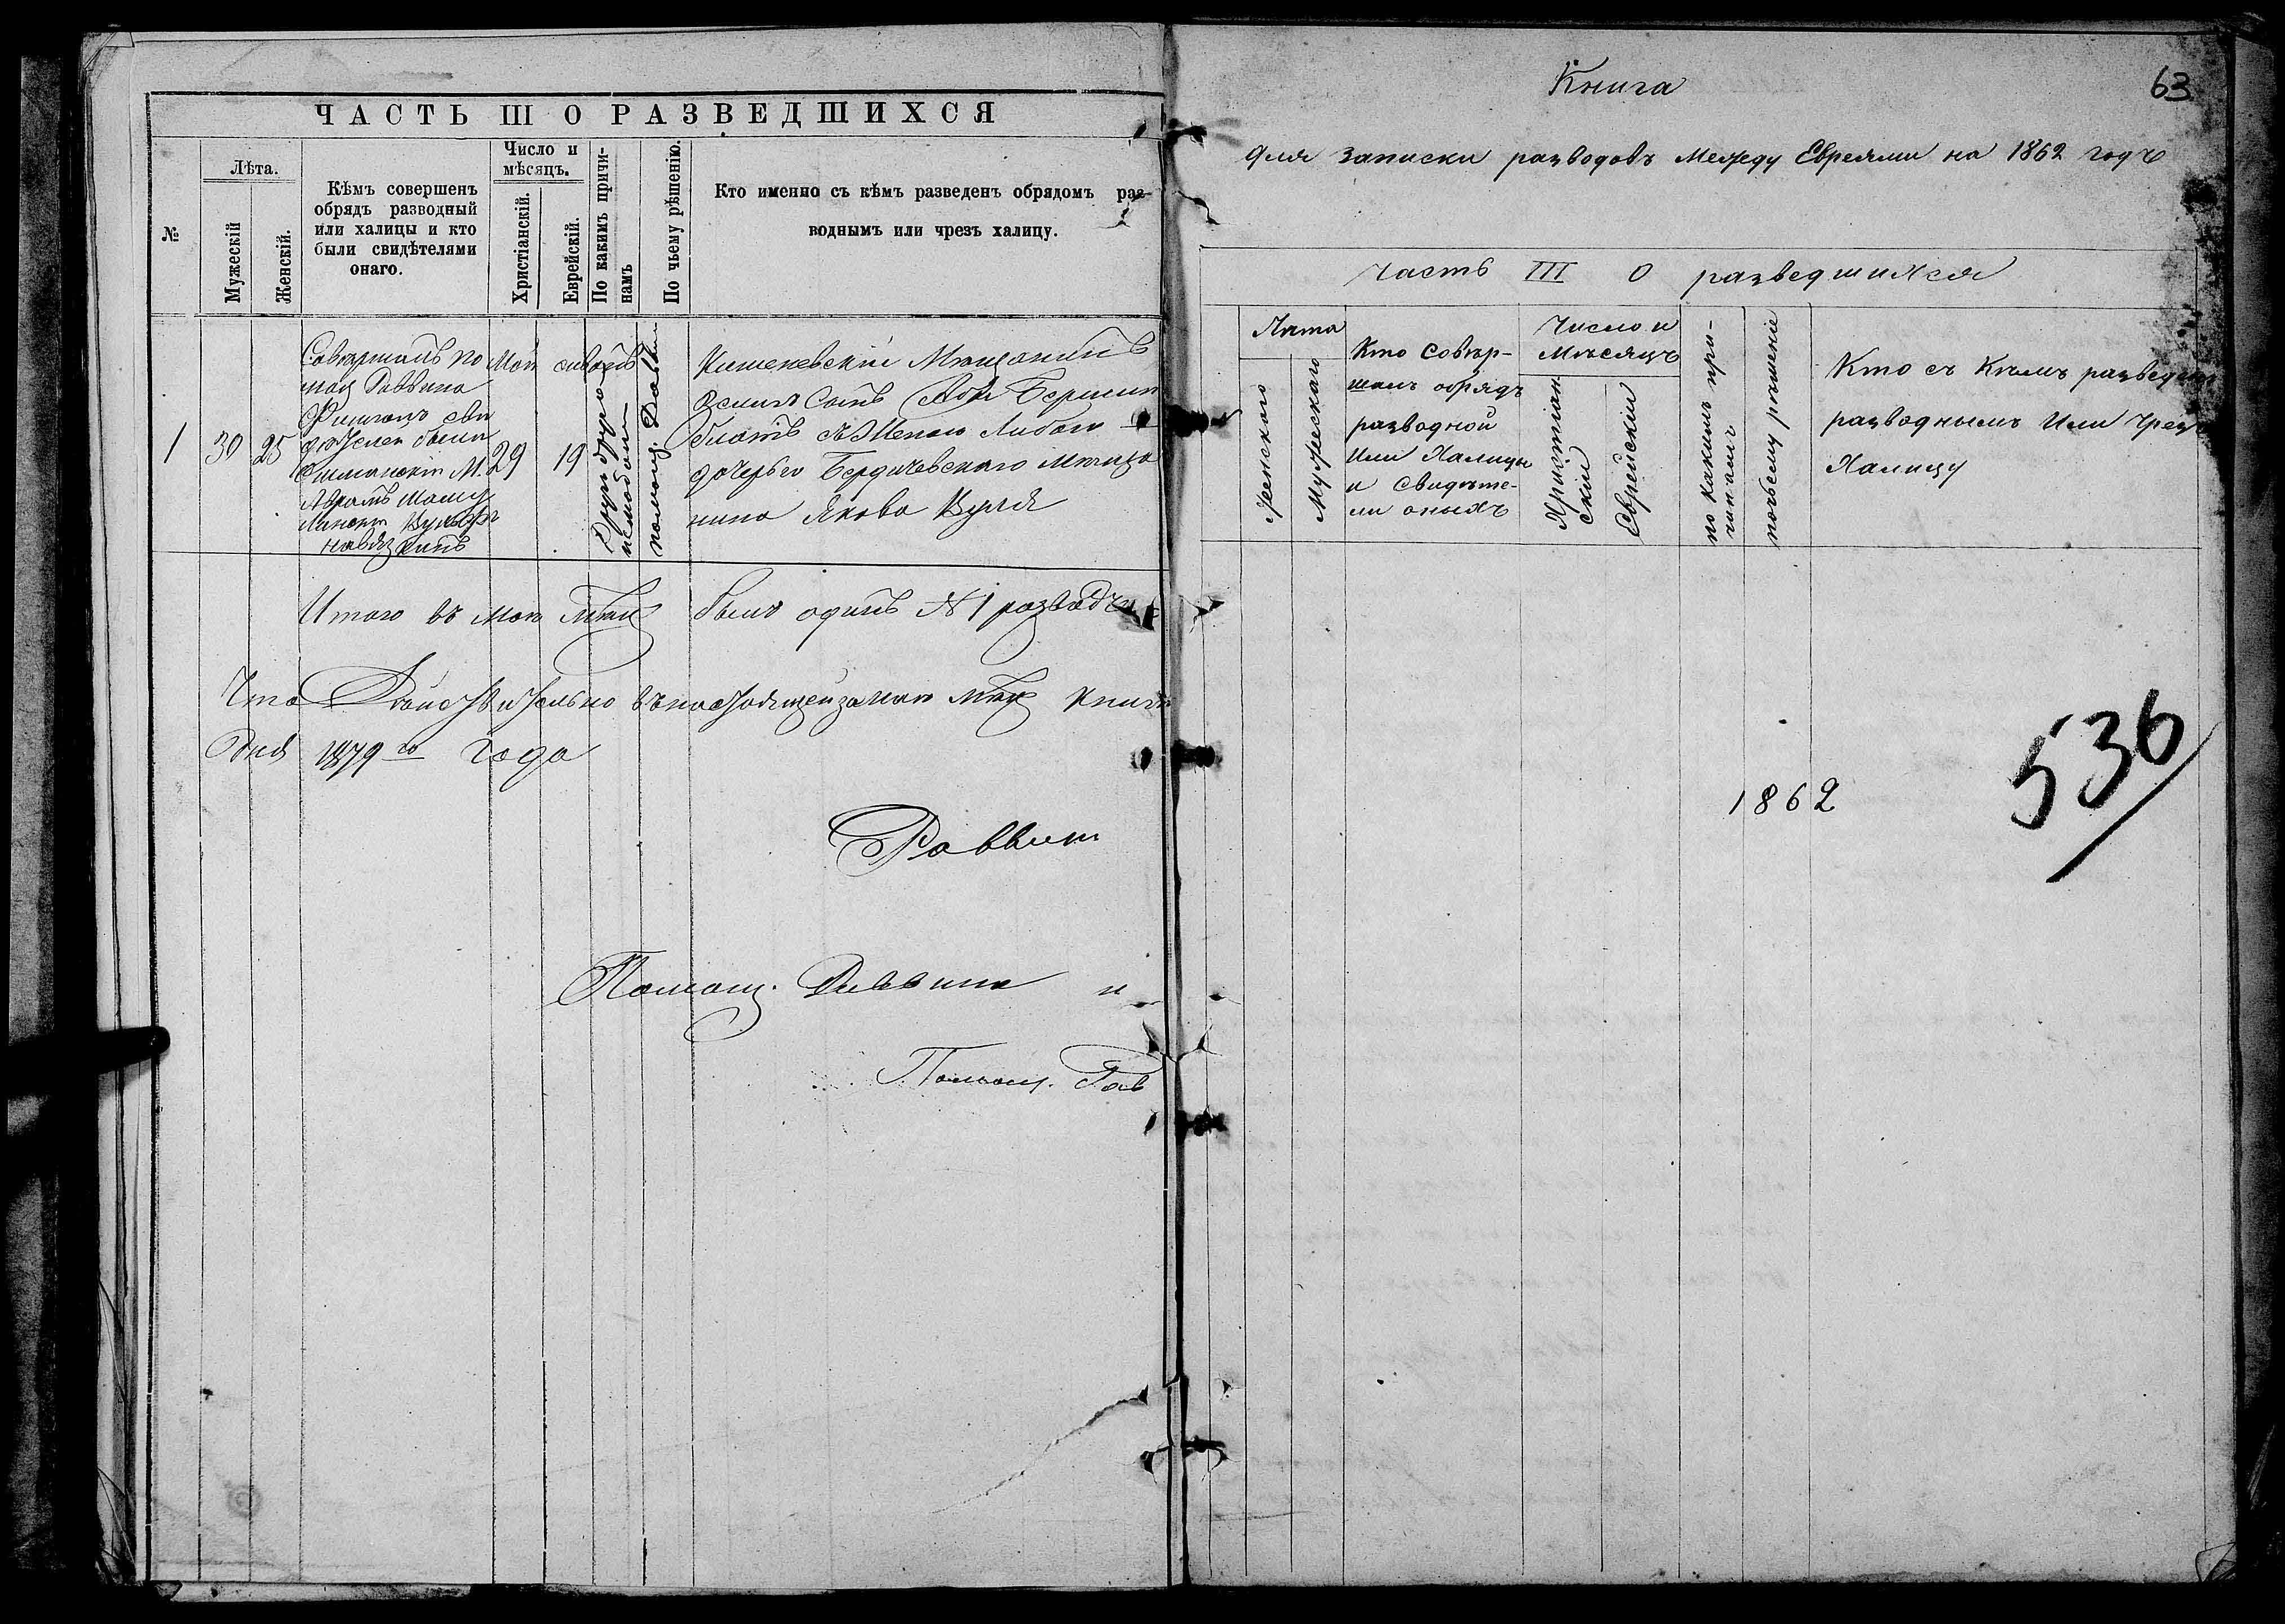 ЧАСТЬ III О РАЗВЕДШИХСЯ
№
Лѣта.
Мужескій
Женскій.
Кѣмъ совершенъ
обрядъ разводный
или халицы и кто
были свидѣтелями
онаго.
Число и
мѣсяцъ.
Христіанскій.
Еврейскій.
По какимъ причи-
намъ
По чьему рѣшенію.
Кто именно съ кѣмъ разведенъ обрядомъ раз-
воднымъ или чрезъ халицу.
1
30
25
Совершалъ по
мощ Раввина
были
М.
Аврамъ
Май
29
19
помощ. Равви
Кишеневскій Мѣщанинъ
Зелигъ Сынъ
съ Женою Либою
дочерью Бердичевскаго Мѣща
нина Якова
Итого въ маѣ мѣц былъ одинъ № 1 разводъ
Что Дѣйствительно въ настоящей за май мѣц книгѣ
Дня 1879 го года
Раввин
Помощ. Раввина и
Помощ. Рав
63
Книга
Для записки разводовъ Между Евреями на 1862 годъ
Часть III О разведшихся
Лѣта
Женскаго
Мужескаго
Кто Совѣр-
шалъ обрядъ
разводной
Или Халицы
и Свидѣте-
ли оныхъ
Число и
Мѣсяцъ
Христіан
скій
Еврейскій
по какимъ при-
чинамъ
почьему рѣшеніе
Кто съ Кѣмъ разведенъ
разводнымъ Или Чрезъ
Халицу
1862
536